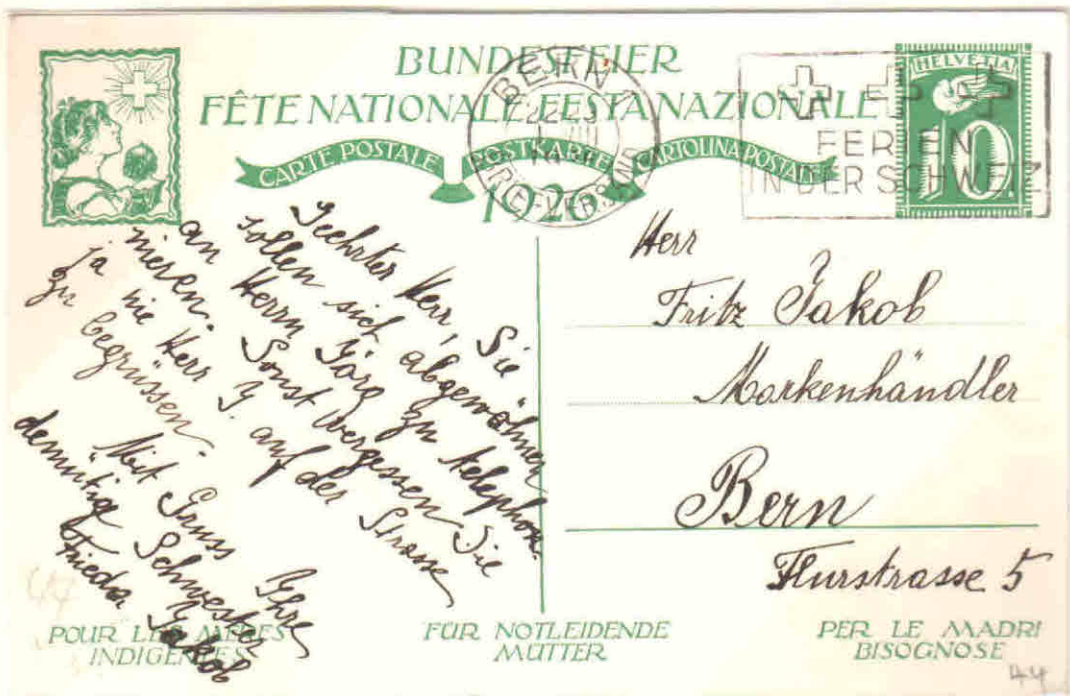 BUNDESFEIER
FÊTE NATIONALE FESTA NAZIONALE
CARTE POSTALE POSTKARTE CARTOLINA POSTALE
1926
BERN 1
BRIEFVERSAND
FERIEN
IN DER SCHWEIZ
HELVETIA
10
Geehrter Herr, Sie
sollen sich abgewöhnen
an Herrn Jörg zu telepho-
nieren. Sonst vergessen Sie
ja nie Herr J. auf der Strasse
zu begrüssen.
Mit Gruss Ihre
demütige Schwester
Frieda Jakob
Herr
Fritz Jakob
Markenhändler
Bern
Flurstrasse 5
POUR LES MÈRES
INDIGENTES
FÜR NOTLEIDENDE
MÜTTER
PER LE MADRI
BISOGNOSE
44